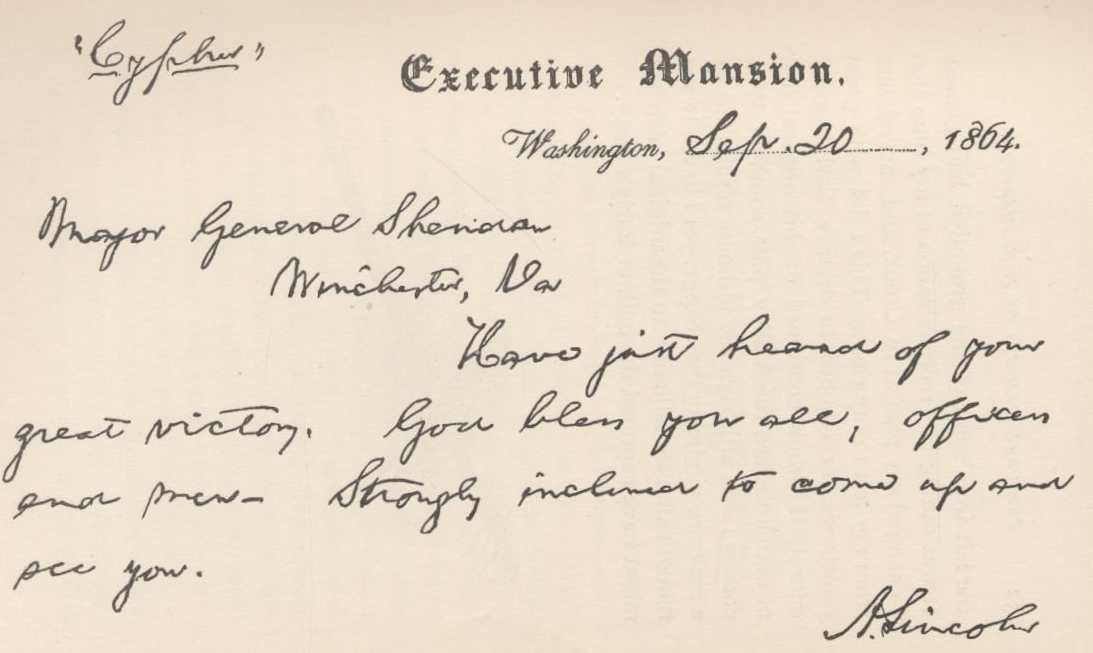 "Cypher"
Executive Mansion,
Washington, Sep. 20, 1864.
Major General Sheridan
Winchester, Va
Have just heard of your
great victory. God bless you all, officers
and men— Strongly inclined to come up and
see you.
A. Lincoln